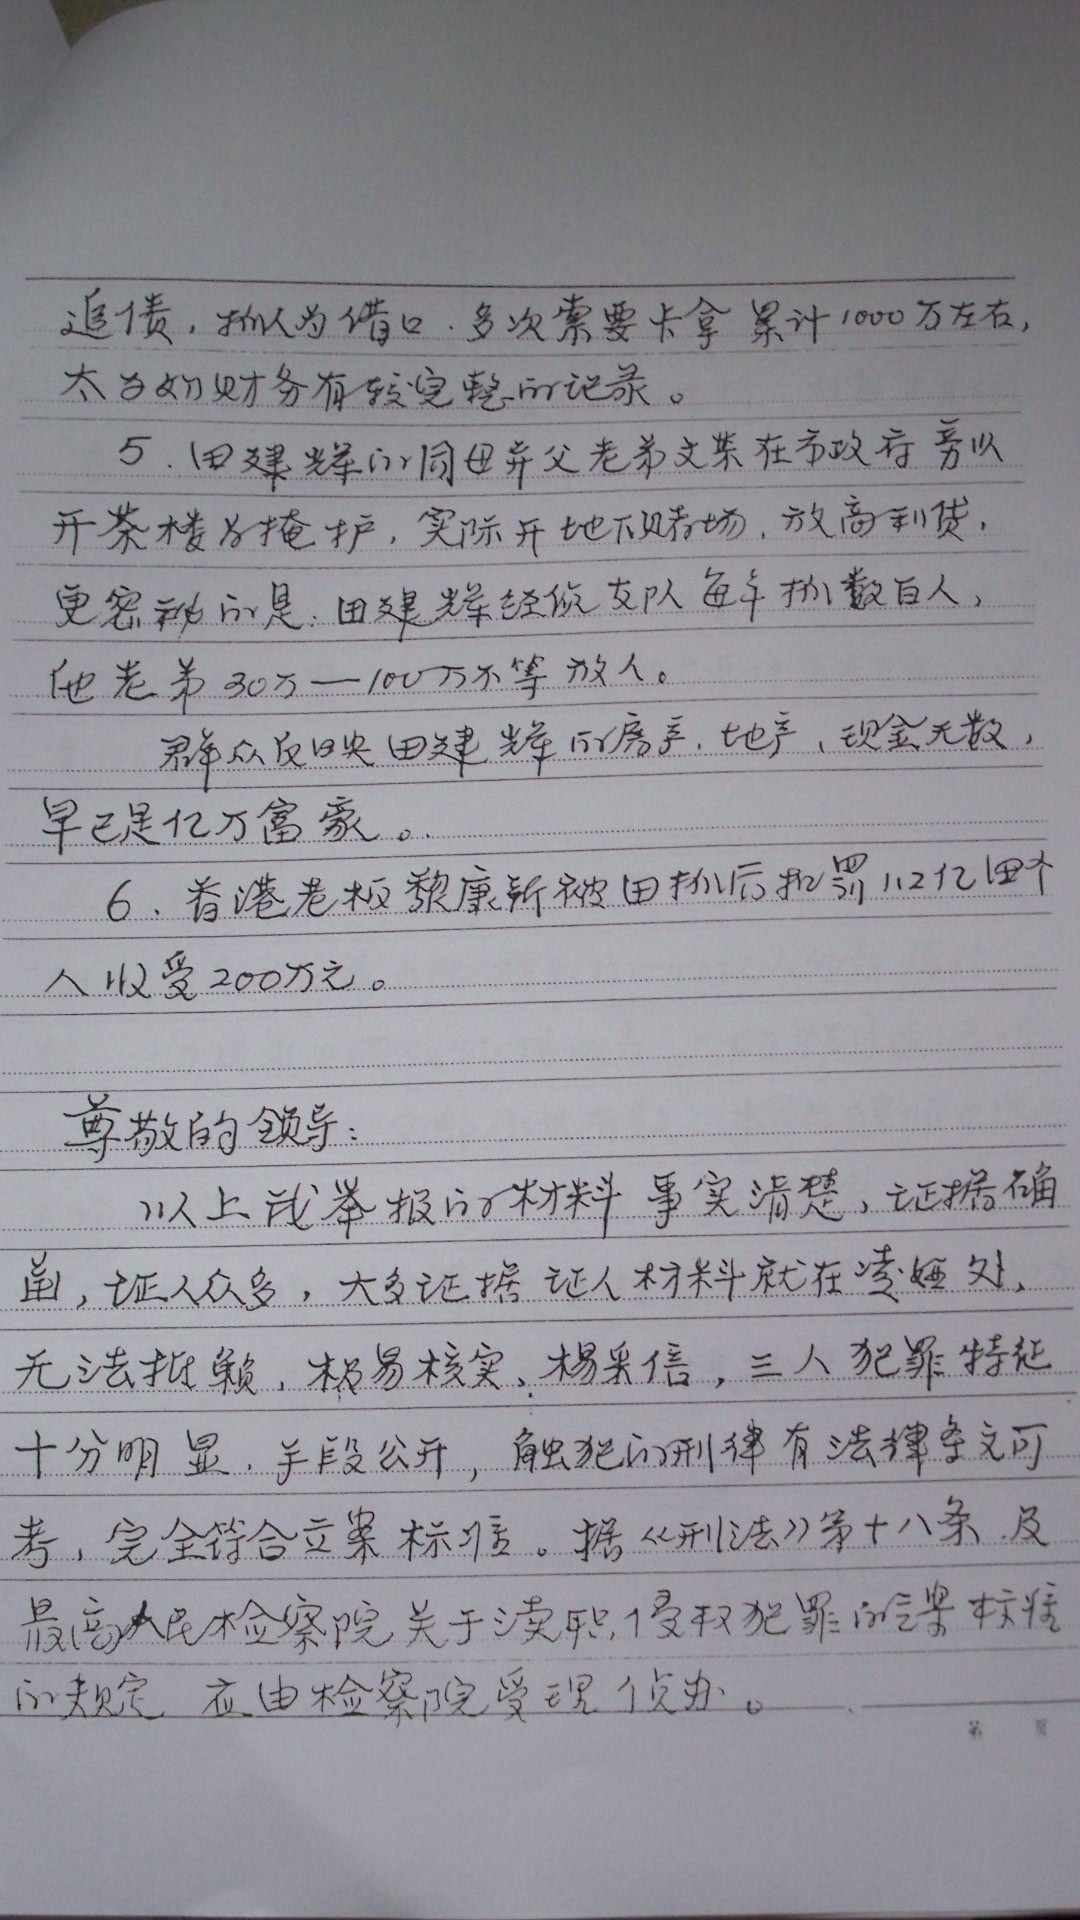 追债,抓人为借口.多次索要卡拿累计1000万左右,
太子奶财务有较完整的记录。
5.田建辉的同母异父老弟文某在市政府旁以
开茶楼为掩护,实际开地下赌场,放高利贷,
更密秘的是:田建辉经侦支队每年抓数百人,
他老弟30万—100万不等放人。
群众反映田建辉的房产、地产、现金无数,
早已是亿万富豪。
6.香港老板黎康新被田抓后扣罚1.2亿田个
人收受200万元。
尊敬的领导:
以上我举报的材料事实清楚,证据确
凿,证人众多,大多证据证人材料就在凌娅处,
无法抵赖,极易核实、易采信,三人犯罪特征
十分明显.手段公开,触犯的刑律有法律条文可
考,完全符合立案标准。据《刑法》第十八条及
最高人民检察院关于渎职,侵权犯罪的立案标准
的规定 应由检察院受理侦办。
第 页